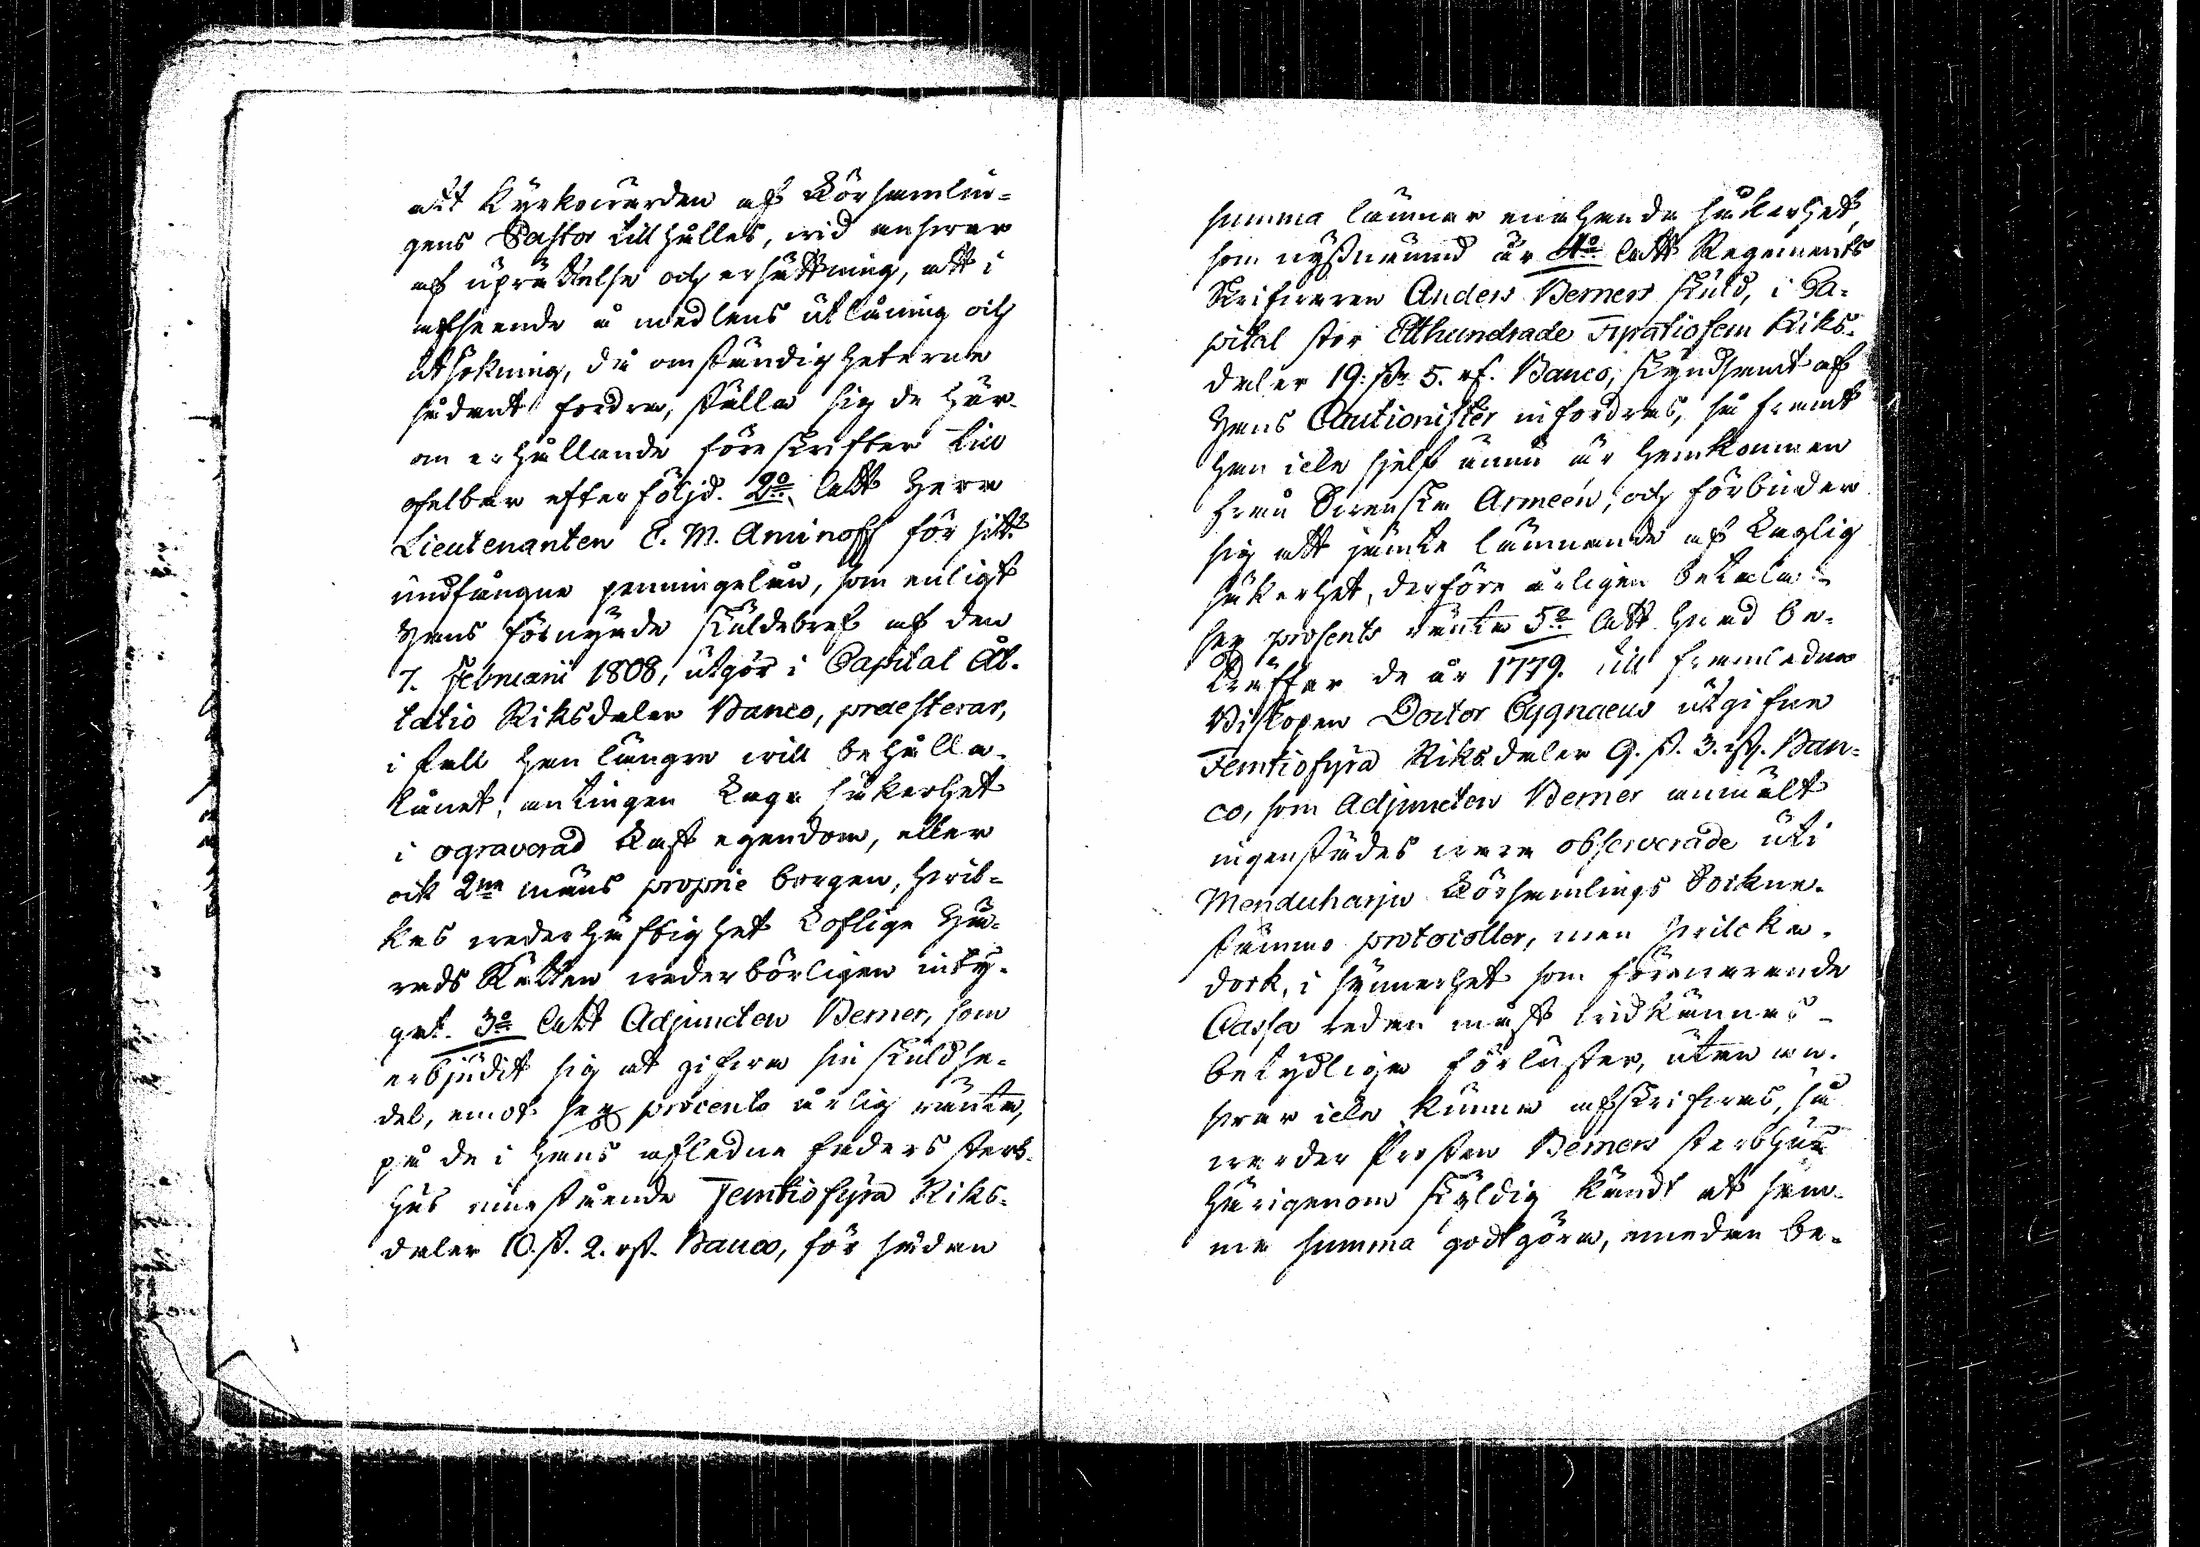 att Kyrkowärden af Församlin-
gens Pastor tillhålles, wid answar
af uprättelse och ersättning, att i
afseende å medlens utlåning och
utsökning, då omständigheterne
sådant fordra, ställa sig de här-
om erhållande föreskrifter till
ofelbar efterföljd. 2o. latt Herr
Lieutenanten C. M. Aminoff för sitt
undfångne penningelån, som enligt
Hans förnyade skuldebref af den
7. Februarii 1808, utgör i Capital Åt-
tatio Riksdaler Banco, praesterar,
i fall han längre will behålla
lånet, antingen laga säkerhet
i ograverad fast egendom, eller
ock 2ne mäns proprie borgen, hwil-
kas wederhäftighet Loflige Hä-
rads Rätten wederbörligen inty-
gat. 3o latt Adjuncten Berner, som
erbjudit sig at gifwa sin skuldse-
del, emot sex procents årlig ränta,
på de i Hans afledne faders sterb-
hus innestående Femtiofyra Riks-
daler 10 ß. 2. rst. Banco, för sådan
summa lämnar enahanda säkerhet,
som nyssnämnd är 4o latt Regements
Skrifwaren Anders Berners skuld, i Ca-
pital stor Etthundrade Fyratiofem Riks-
daler 19: ß. 5. rst. Banco, skyndsamt af
Hans Cautionister infordras, så framt
han icke sjelf ännu är hemkommen
från Swenska Armeén, och förbinder
sig att jämte lämnande af laglig
säkerhet, derföre årligen betala
sex procents ränta 5o latt hwad be-
träffar de år 1779. till framledne
Biskopen Doctor Cygnaeus utgifne
Femtiofyra Riksdaler 9. ß. 3. rst. Ban-
co, som Adjuncten Berner anmält
ingenstädes wara observerade uti
Menduharju Församlings Sockne-
stämmo protocoller, men hwilcka
dock, i synnerhet som förewarande
Cassa redan måst widkännas
betydliga förluster, utan an-
swar icke kunna afskrifwas, så
warder Prosten Berners sterbhus
härigenom skyldig kändt at sam-
ma summa godtgöra, emedan be-